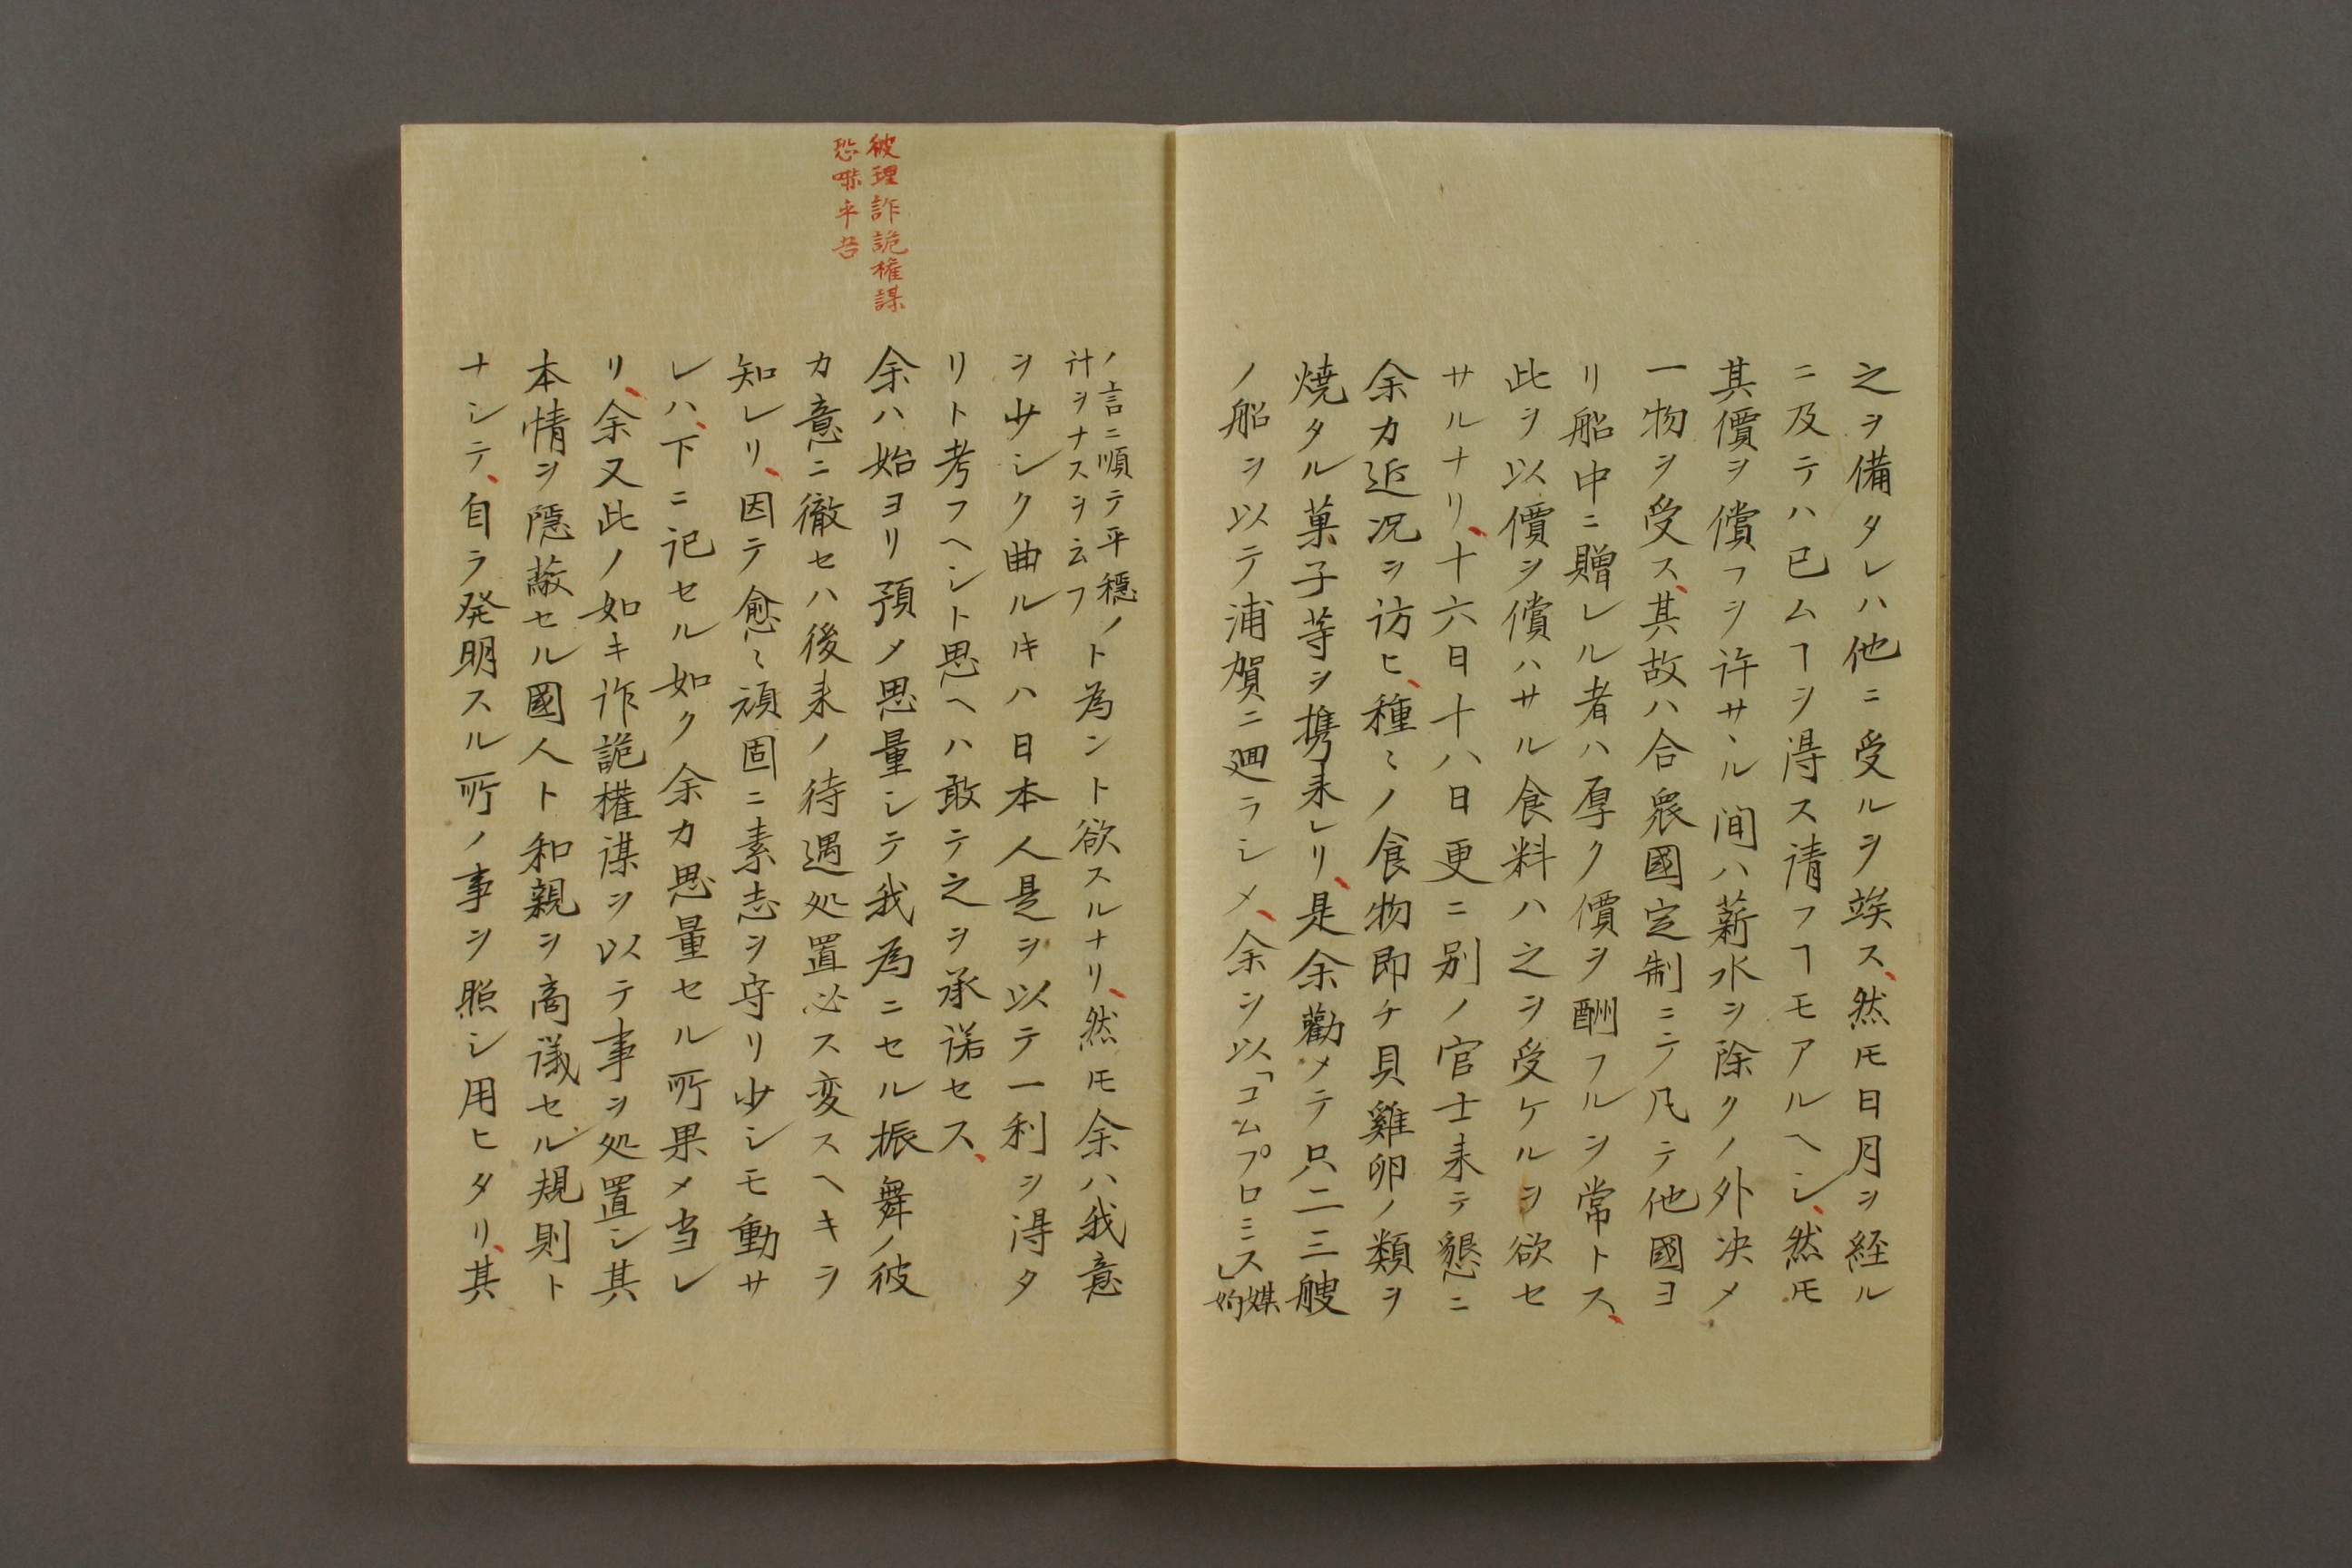 之ヲ備タレハ他ニ受ルヲ竢ス、然𪜈日月ヲ経ル
ニ及テハ已ムヿヲ得ス請フヿモアルヘシ、然𪜈
其價ヲ償フヲ许サヽル间ハ薪水ヲ除クノ外决メ
一物ヲ受ス、其故ハ合衆國定制ニテ凡テ他國ヨ
リ船中ニ贈レル者ハ厚ク價ヲ酬フルヲ常トス、
此ヲ以價ヲ償ハサル食料ハ之ヲ受ケルヲ欲セ
サルナリ、十六日十八日更ニ別ノ官士来テ懇ニ
余カ近况ヲ访ヒ、種〻ノ食物即チ貝雞卵ノ類ヲ
焼タル菓子等ヲ携来レリ、是余勸メテ只二三艘
ノ船ヲ以テ浦賀ニ廻ラシメ、余ヲ以「コムプロミス」媒妁
ノ言ニ順テ平穏ノ
計ヲナスヲ云フ
ト為ント欲スルナリ、然𪜈余ハ我意
ヲ少シク曲ル𪜈ハ日本人是ヲ以テ一利ヲ得タ
リト考フヘシト思ヘハ敢テ之ヲ承诺セス、
彼理詐詭権謀
恐嚇平吾
余ハ始ヨリ預メ思量シテ我為ニセル振舞ノ彼
カ意ニ徹セハ後来ノ待遇処置必ス変スヘキヲ
知レリ、因テ愈〻頑固ニ素志ヲ守リ少シモ動サ
レハ、下ニ记セル如ク余カ思量セル所果メ当レ
リ、余又此ノ如キ诈詭權谋ヲ以テ事ヲ処置シ其
本情ヲ隠蔽セル國人ト和親ヲ商议セル規則ト
ナシテ、自ラ発明スル所ノ事ヲ照シ用ヒタリ、其